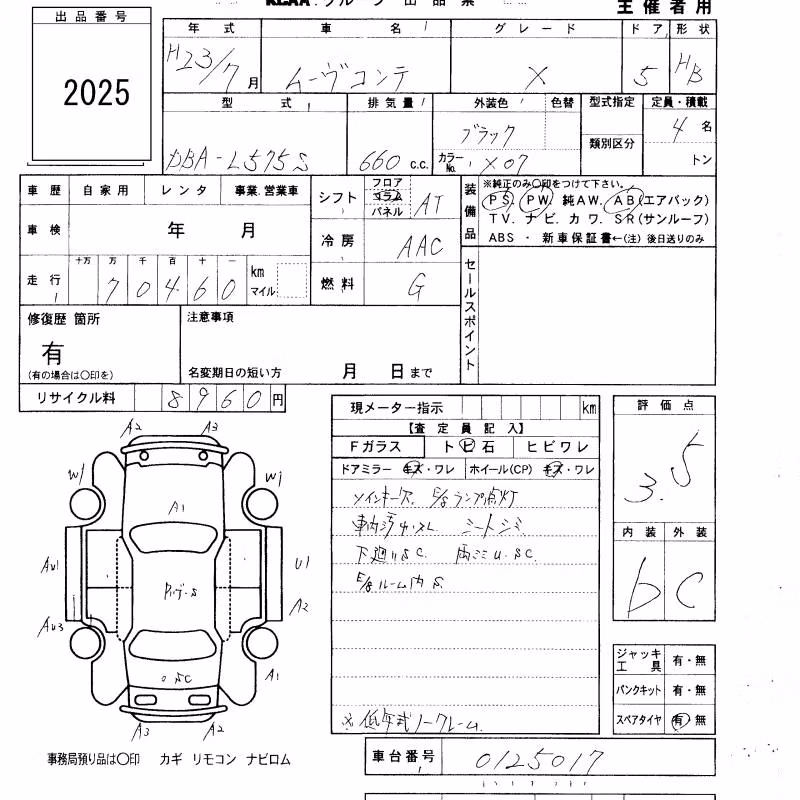 KCAA グループ 出品票
主催者用
出品番号
2025
年式 車名 グレード ドア 形状
H23/7月 ムーヴコンテ X 5 HB
型式 排気量 外装色 色替 型式指定 定員・積載
DBA-L575S 660 c.c. ブラック 類別区分 4 名
カラーNo. X07 トン
車歴 自家用 レンタ 事業.営業車
車検 年 月
走行 十万 万 千 百 十 一 km マイル
70460
シフト フロア コラム パネル AT
冷房 AAC
燃料 G
装備品 ※純正のみ〇印をつけて下さい。
PS. PW. 純AW. AB(エアバック)
TV. ナビ. カワ. SR(サンルーフ)
ABS ・ 新車保証書←(注) 後日送りのみ
セールスポイント
修復歴 箇所
有
(有の場合は〇印を)
注意事項
名変期日の短い方 月 日まで
リサイクル料 8960円
現メーター指示 km
【査定員記入】
Fガラス トビ石 ヒビワレ
ドアミラー キズ・ワレ ホイール(CP) キズ・ワレ
メインキー欠. E/gランプ点灯
車内汚 シートシミ
下廻りSC.
E/gルーム内 S.
※低年式ノークレーム.
評価点
3.5
内装 外装
b C
ジャッキ工具 有・無
パンクキット 有・無
スペアタイヤ 有・無
A2 A3
W1 W1
A1
AU1 U1
A2
AU3
A1
A3 A2
事務局預り品は〇印 カギ リモコン ナビロム
車台番号 0125017